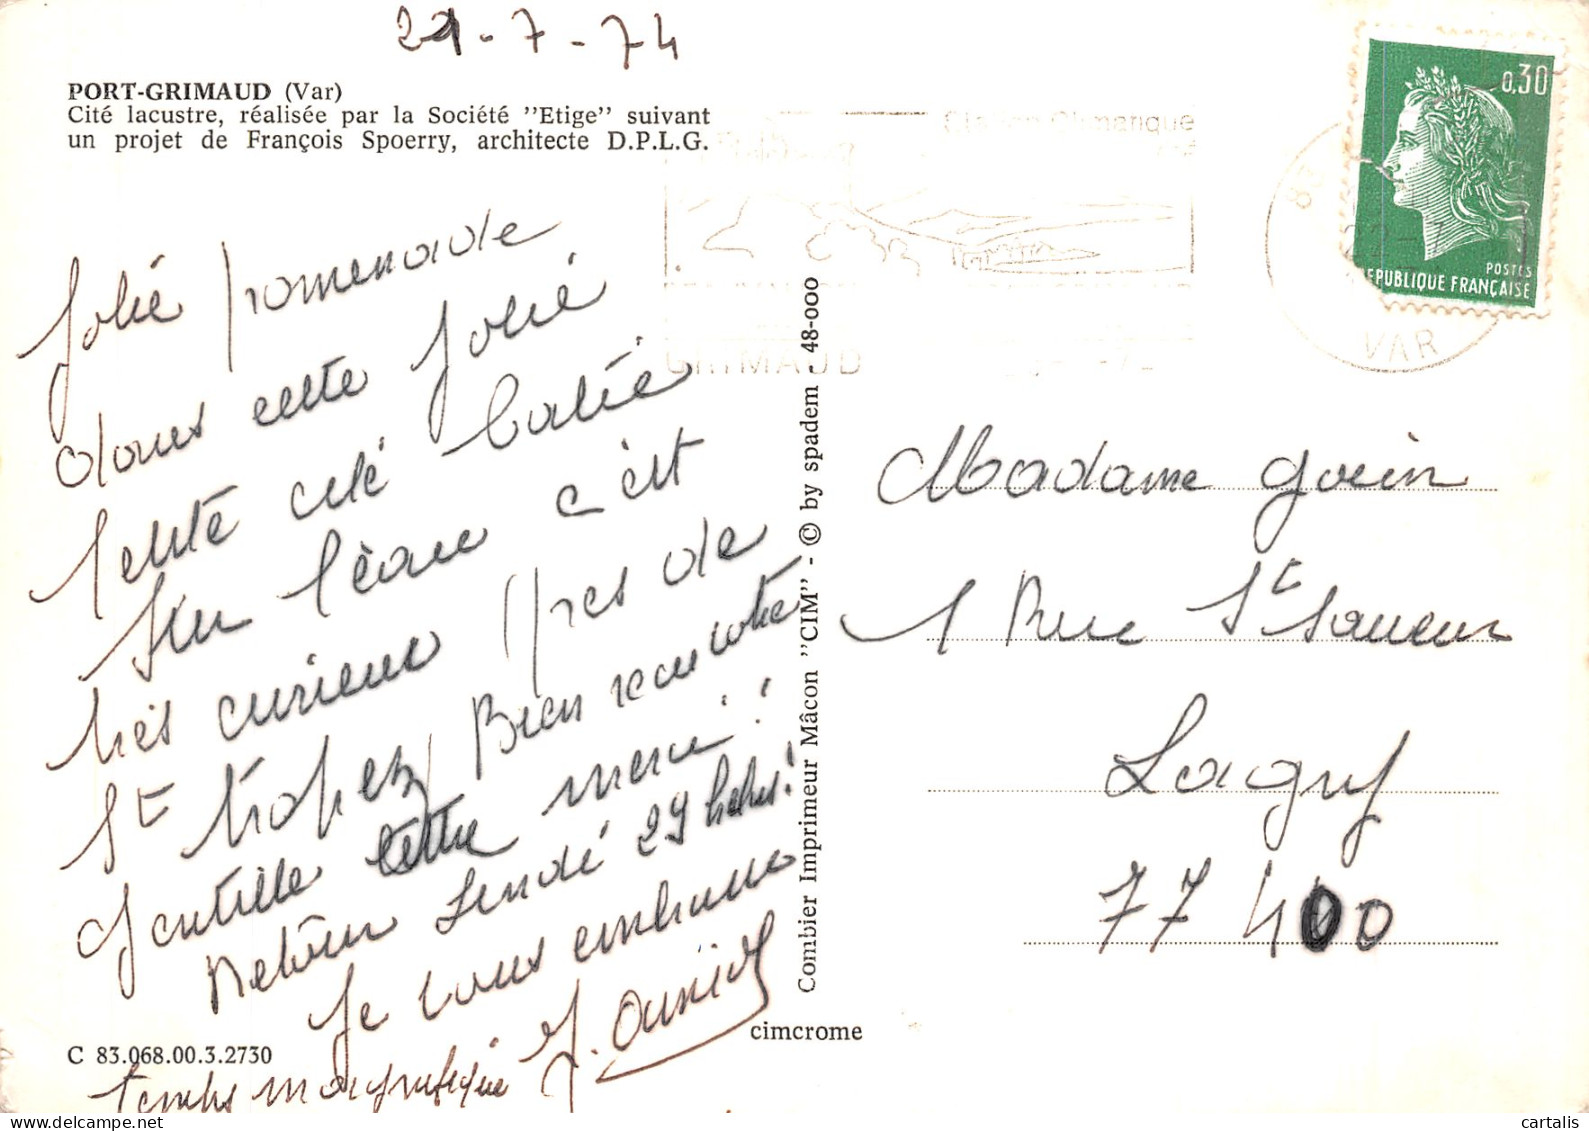 21-7-74
PORT-GRIMAUD (Var)
Cité lacustre, réalisée par la Société "Etige" suivant
un projet de François Spoerry, architecte D.P.L.G.
Jolie promenade
dans cette jolie
petite cité batie
sur l'eau c'est
très curieux près de
St Tropez, Bien recu votre
gentille lettre merci !
Retour lundi 29
Je vous embrasse
temps magnifique J.
C 83.068.00.3.2730
Combier Imprimeur Mâcon "CIM" - © by spadem - 48-000
cimcrome
Station Climatique
GRIMAUD
83
VAR
0,30
POSTES
EPUBLIQUE FRANÇAISE
Madame Goein
1 Rue St Sauveur
Lagny
77 400
cartalis